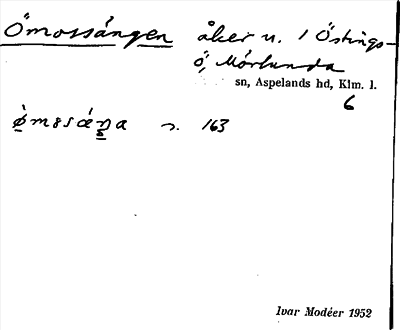 Ömossängen åker n. 1 Östings-
ö, Mörlunda
sn, Aspelands hd, Klm. l.
6
n. 163
Ivar Modéer 1952